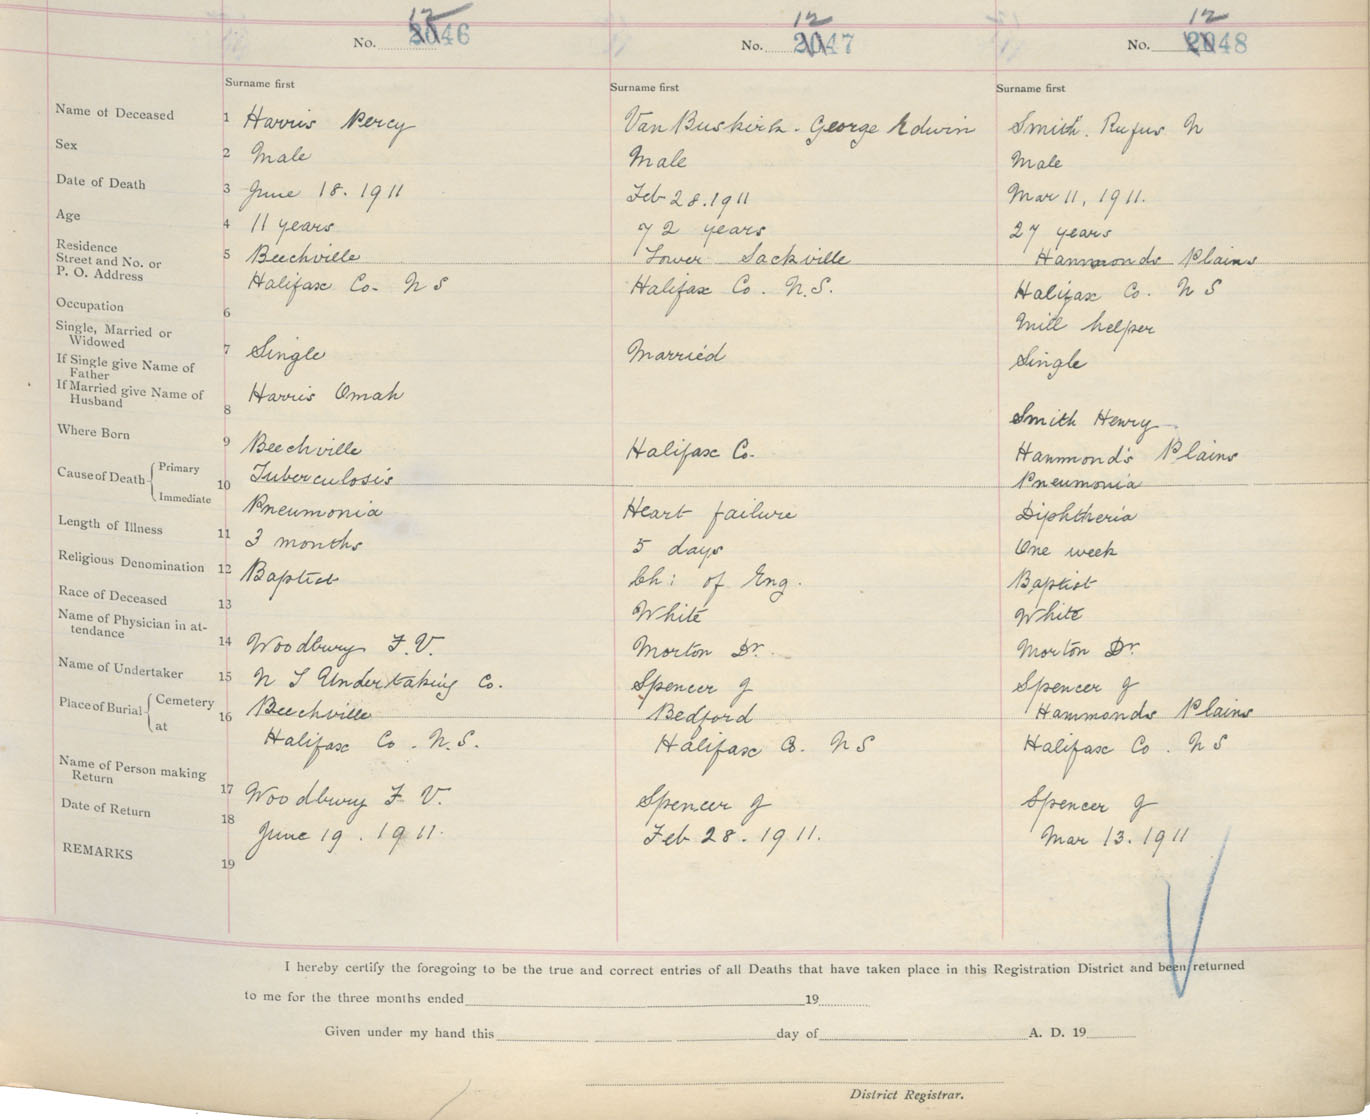 No. 12 2046 No. 12 2047 No. 12 2048
Surname first Surname first Surname first
Name of Deceased 1 Harris Percy Van Buskirk. George Edwin Smith. Rufus N
Sex 2 Male Male Male
Date of Death 3 June 18. 1911 Feb 28. 1911 Mar 11, 1911.
Age 4 11 years 72 years 27 years
Residence
Street and No. or 5 Beechville Lower Sackville Hammonds Plains
P. O. Address Halifax Co. N S Halifax Co. N.S. Halifax Co. N S
Occupation 6 Mill helper
Single, Married or
Widowed 7 Single Married Single
If Single give Name of
Father
If Married give Name of Harris Omah
Husband 8 Smith Henry
Where Born 9 Beechville Halifax Co. Hammond's Plains
Cause of Death Primary 10 Tuberculosis Pneumonia
Immediate Pneumonia Heart failure Diphtheria
Length of Illness 11 3 months 5 days One week
Religious Denomination 12 Baptist Ch: of Eng. Baptist
Race of Deceased 13 White White
Name of Physician in at-
tendance 14 Woodbury F. V. Morton Dr. Morton Dr
Name of Undertaker 15 N S Undertaking Co. Spencer J Spencer J
Place of Burial Cemetery 16 Beechville Bedford Hammonds Plains
at Halifax Co. N.S. Halifax Co. N S Halifax Co. N S
Name of Person making
Return 17 Woodbury F. V. Spencer J Spencer J
Date of Return 18 June 19. 1911. Feb 28. 1911. Mar 13. 1911
REMARKS 19
I hereby certify the foregoing to be the true and correct entries of all Deaths that have taken place in this Registration District and been returned
to me for the three months ended 19
Given under my hand this day of A. D. 19
District Registrar.